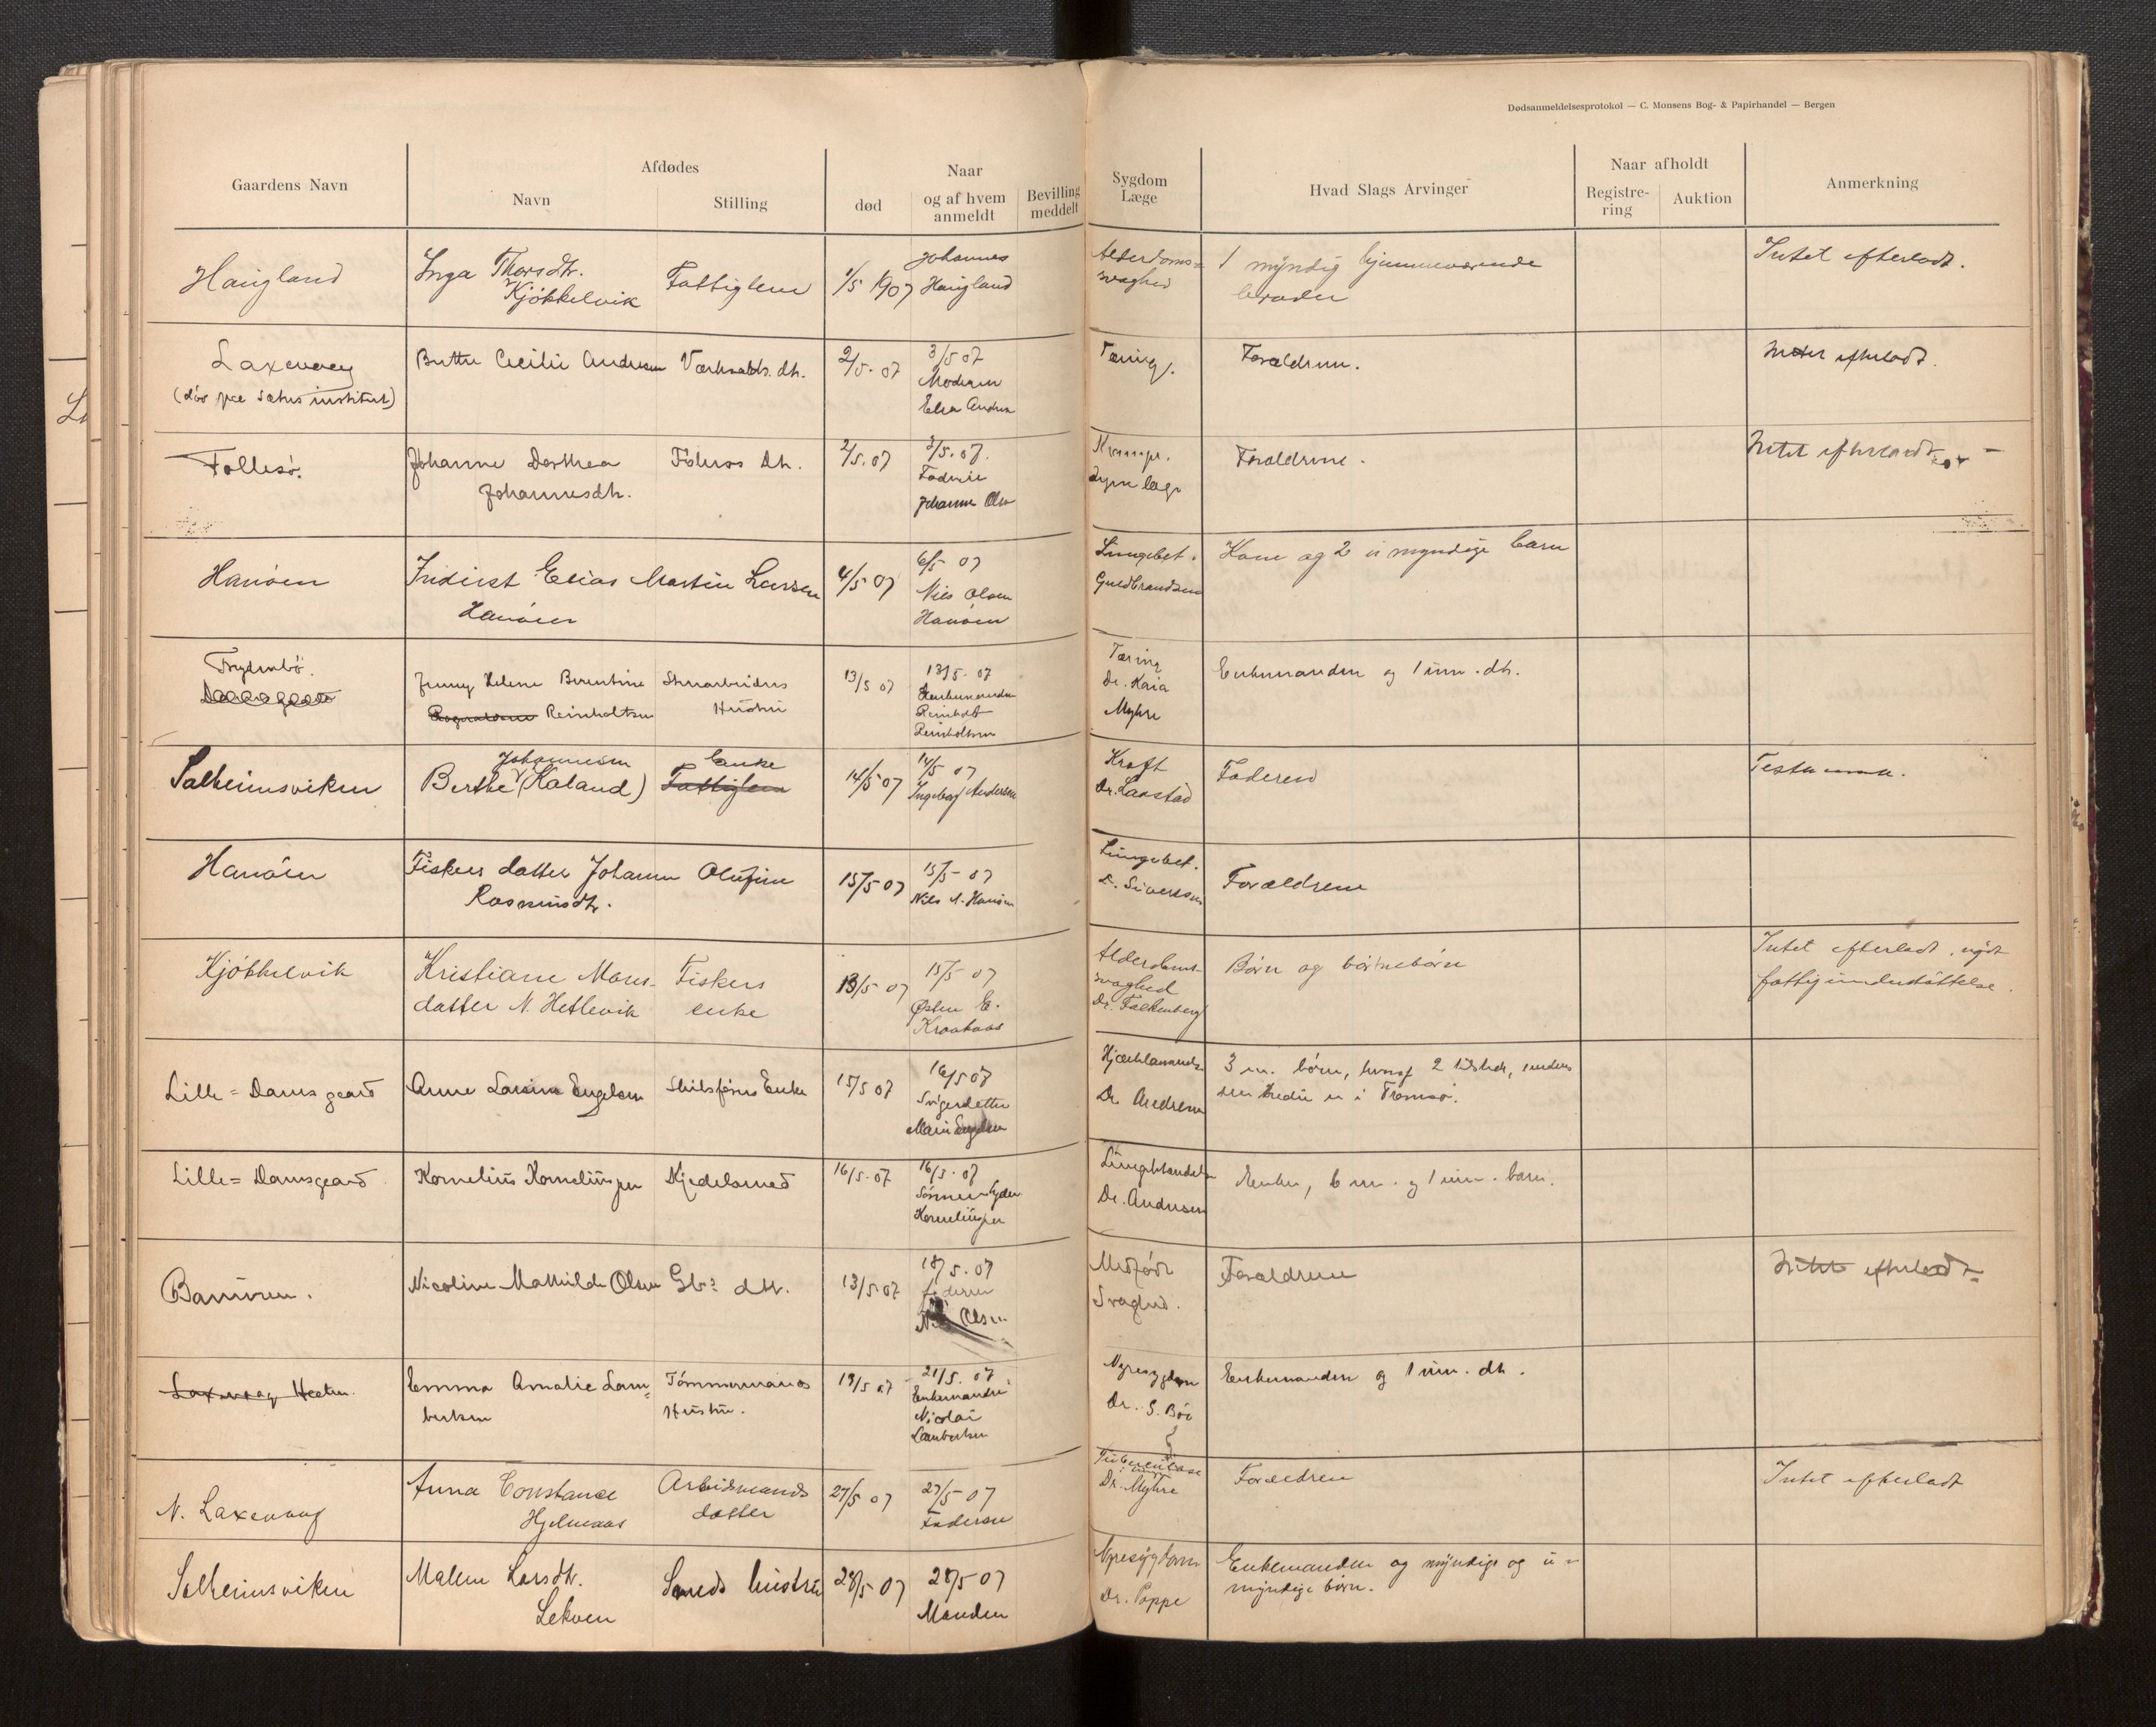 Dødsanmeldelsesprotokol — C. Monsens Bog- & Papirhandel — Bergen
Gaardens Navn
Afdødes
Navn
Stilling
Naar
død
og af hvem
anmeldt
Bevilling
meddelt
Sygdom
Læge
Hvad Slags Arvinger
Naar afholdt
Registre-
ring
Auktion
Anmerkning
Haugland
Inga Thorsdtr.
Kjökkelvik
Fattiglem
1/5 1907
Johannes
Haugland
Alderdoms=
svaghed
1 myndig hjemmeværende
broder
Intet efterladt.
Laxevaag
(död paa institut)
Cecilie Andresen
dtr.
2/5. 07
3/5 07
Moderen
Tæring.
Forældrene.
Intet efterladt.
Follesö.
Johanne Dorthea
Johannesdtr.
dtr.
2/5. 07
3/5. 07.
Faderen
Krampe.
Forældrene.
Intet efterladt
Hanöen
Inderst Elias Martin Larsen
Hanöen
4/5 07
6/5 07
Nils Olsen
Hanöen
Lungebet.
Guldbrandsen
Kone og 2 umyndige barn
Frydenbö.
Jenny Helene Berentine
Reinholtsen
Hustru
13/5 07
13/5. 07
Enkemanden
Reinholt
Reinholtsen
Tæring
Dr. Kaia
Myhre
Enkemanden og 1 um. dtr.
Solheimsviken
Johannesen
Berthe (Kaland)
Enke
Fattiglem
14/5 07
14/5 07
Ingeborg Andersen
Kræft
Dr. Laastad
Faderen
Hanöen
Fiskers datter Johanne Olufine
Rasmusdtr.
15/5 07
15/5 07
Nils N. Hanöen
Lungebet.
D. Sivertsen
Forældrene
Kjökkelvik
Kristiane Mons-
datter N. Hetlevik
Fiskers
enke
13/5 07
15/5 07
Østen E.
Alderdoms-
svaghed
Dr. Falkenberg
Börn og börnebörn
Intet efterladt, nydt
fattigunderstöttelse.
Lille = Damsgaard
Anne Larsine Engelsen
Skibsförers Enke
15/5 07
16/5 07
Svigerdatter
Marie Engelsen
Dr. Andresen
3 m. börn, hvoraf 2 tilstede, medens
den tredie er i Tromsö.
Lille = Damsgaard
Kornelius Korneliussen
Kjedelsmed
16/5. 07
16/5. 07
Sönnen
Korneliussen
Dr. Andresen
Enken, 6 m. og 1 um. barn.
Nicoline Mathilde Olsen
Gbr. dtr.
13/5. 07
18/5. 07
Faderen
Olsen
Medfödt
Svaghed.
Forældrene
Intet efterladt
Laxevaag
Emma Amalie Lam=
bertsen
Tömmermands
Hustru.
19/5 07
21/5. 07
Enkemanden
Nicolai
Lambertsen
Nyresygdom
Dr. S. Böe
Enkemanden og 1 um. dtr.
N. Laxevaag
Anna Constance
Hjelmaas
Arbeidsmands
datter
27/5 07
27/5 07
Faderen
Tuberculose
Dr. Myhre
Forældren
Intet efterladt
Solheimsviken
Malene Larsdtr.
Lekven
Smeds hustru
28/5 07
28/5 07
Manden
Nyresygdom
Dr. Poppe
Enkemanden og myndige og u=
myndige börn.